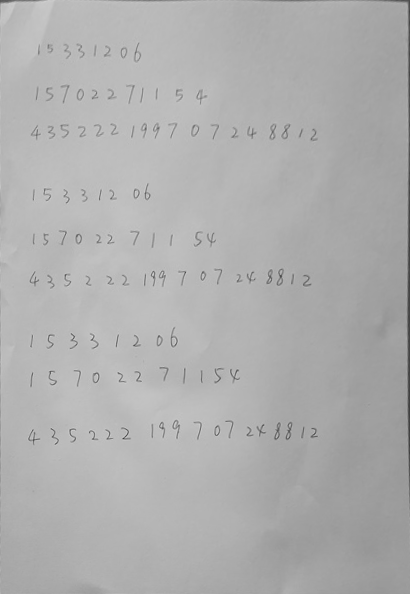 15331206
157022711 54
435222 1997 07 248812
153312 06
157022 711 54
435222 1997 07 248812
15331206
15702271154
435222 199707248812